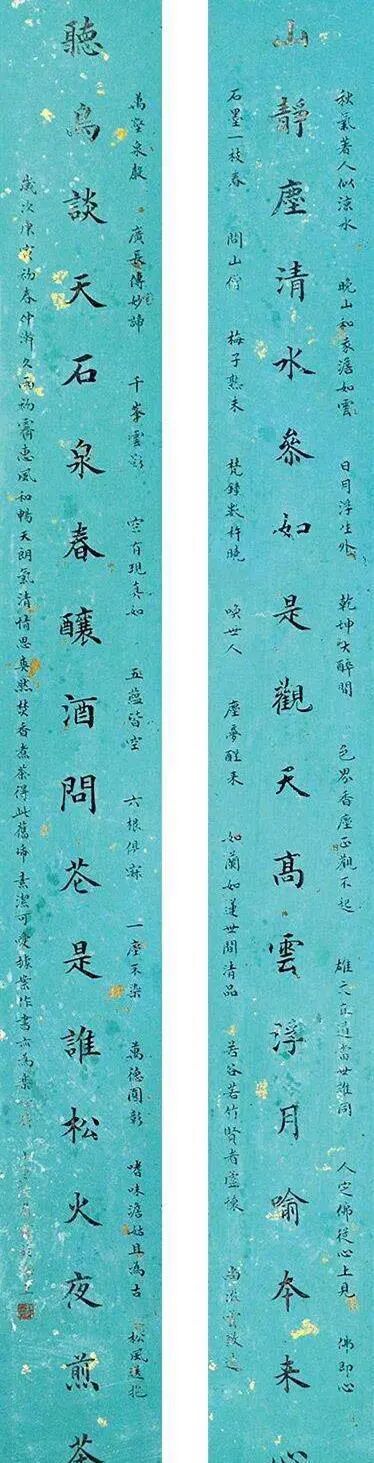 秋氣著人似涼水 晚山和我澹如雲 日月浮生外 乾坤大醉間 色界香塵正觀不起 雄文直道當世誰同 人定佛從心上見 佛即心
山靜塵清水參如是觀天高雲浮月喻本来心
枝春 問山僧 梅子熟未 梵鐘數杵曉 喚世人 塵夢醒来 如蘭如蓮世間清品 若谷若竹賢者虛懷
萬壑泉聲 廣長傳妙諦 千峯雲影 空有現真如 五蘊皆空 六根俱寂 一塵不染 萬德圓彰 嗜味澹 且為古 松風送抱
聽鳥談天石泉春釀酒問花是誰松火夜煎茶
歲次庚寅初春仲澣久雨初霽惠風和暢天朗氣清情思奐然焚香煮茶得此舊帋素潔可愛據案作書亦為樂